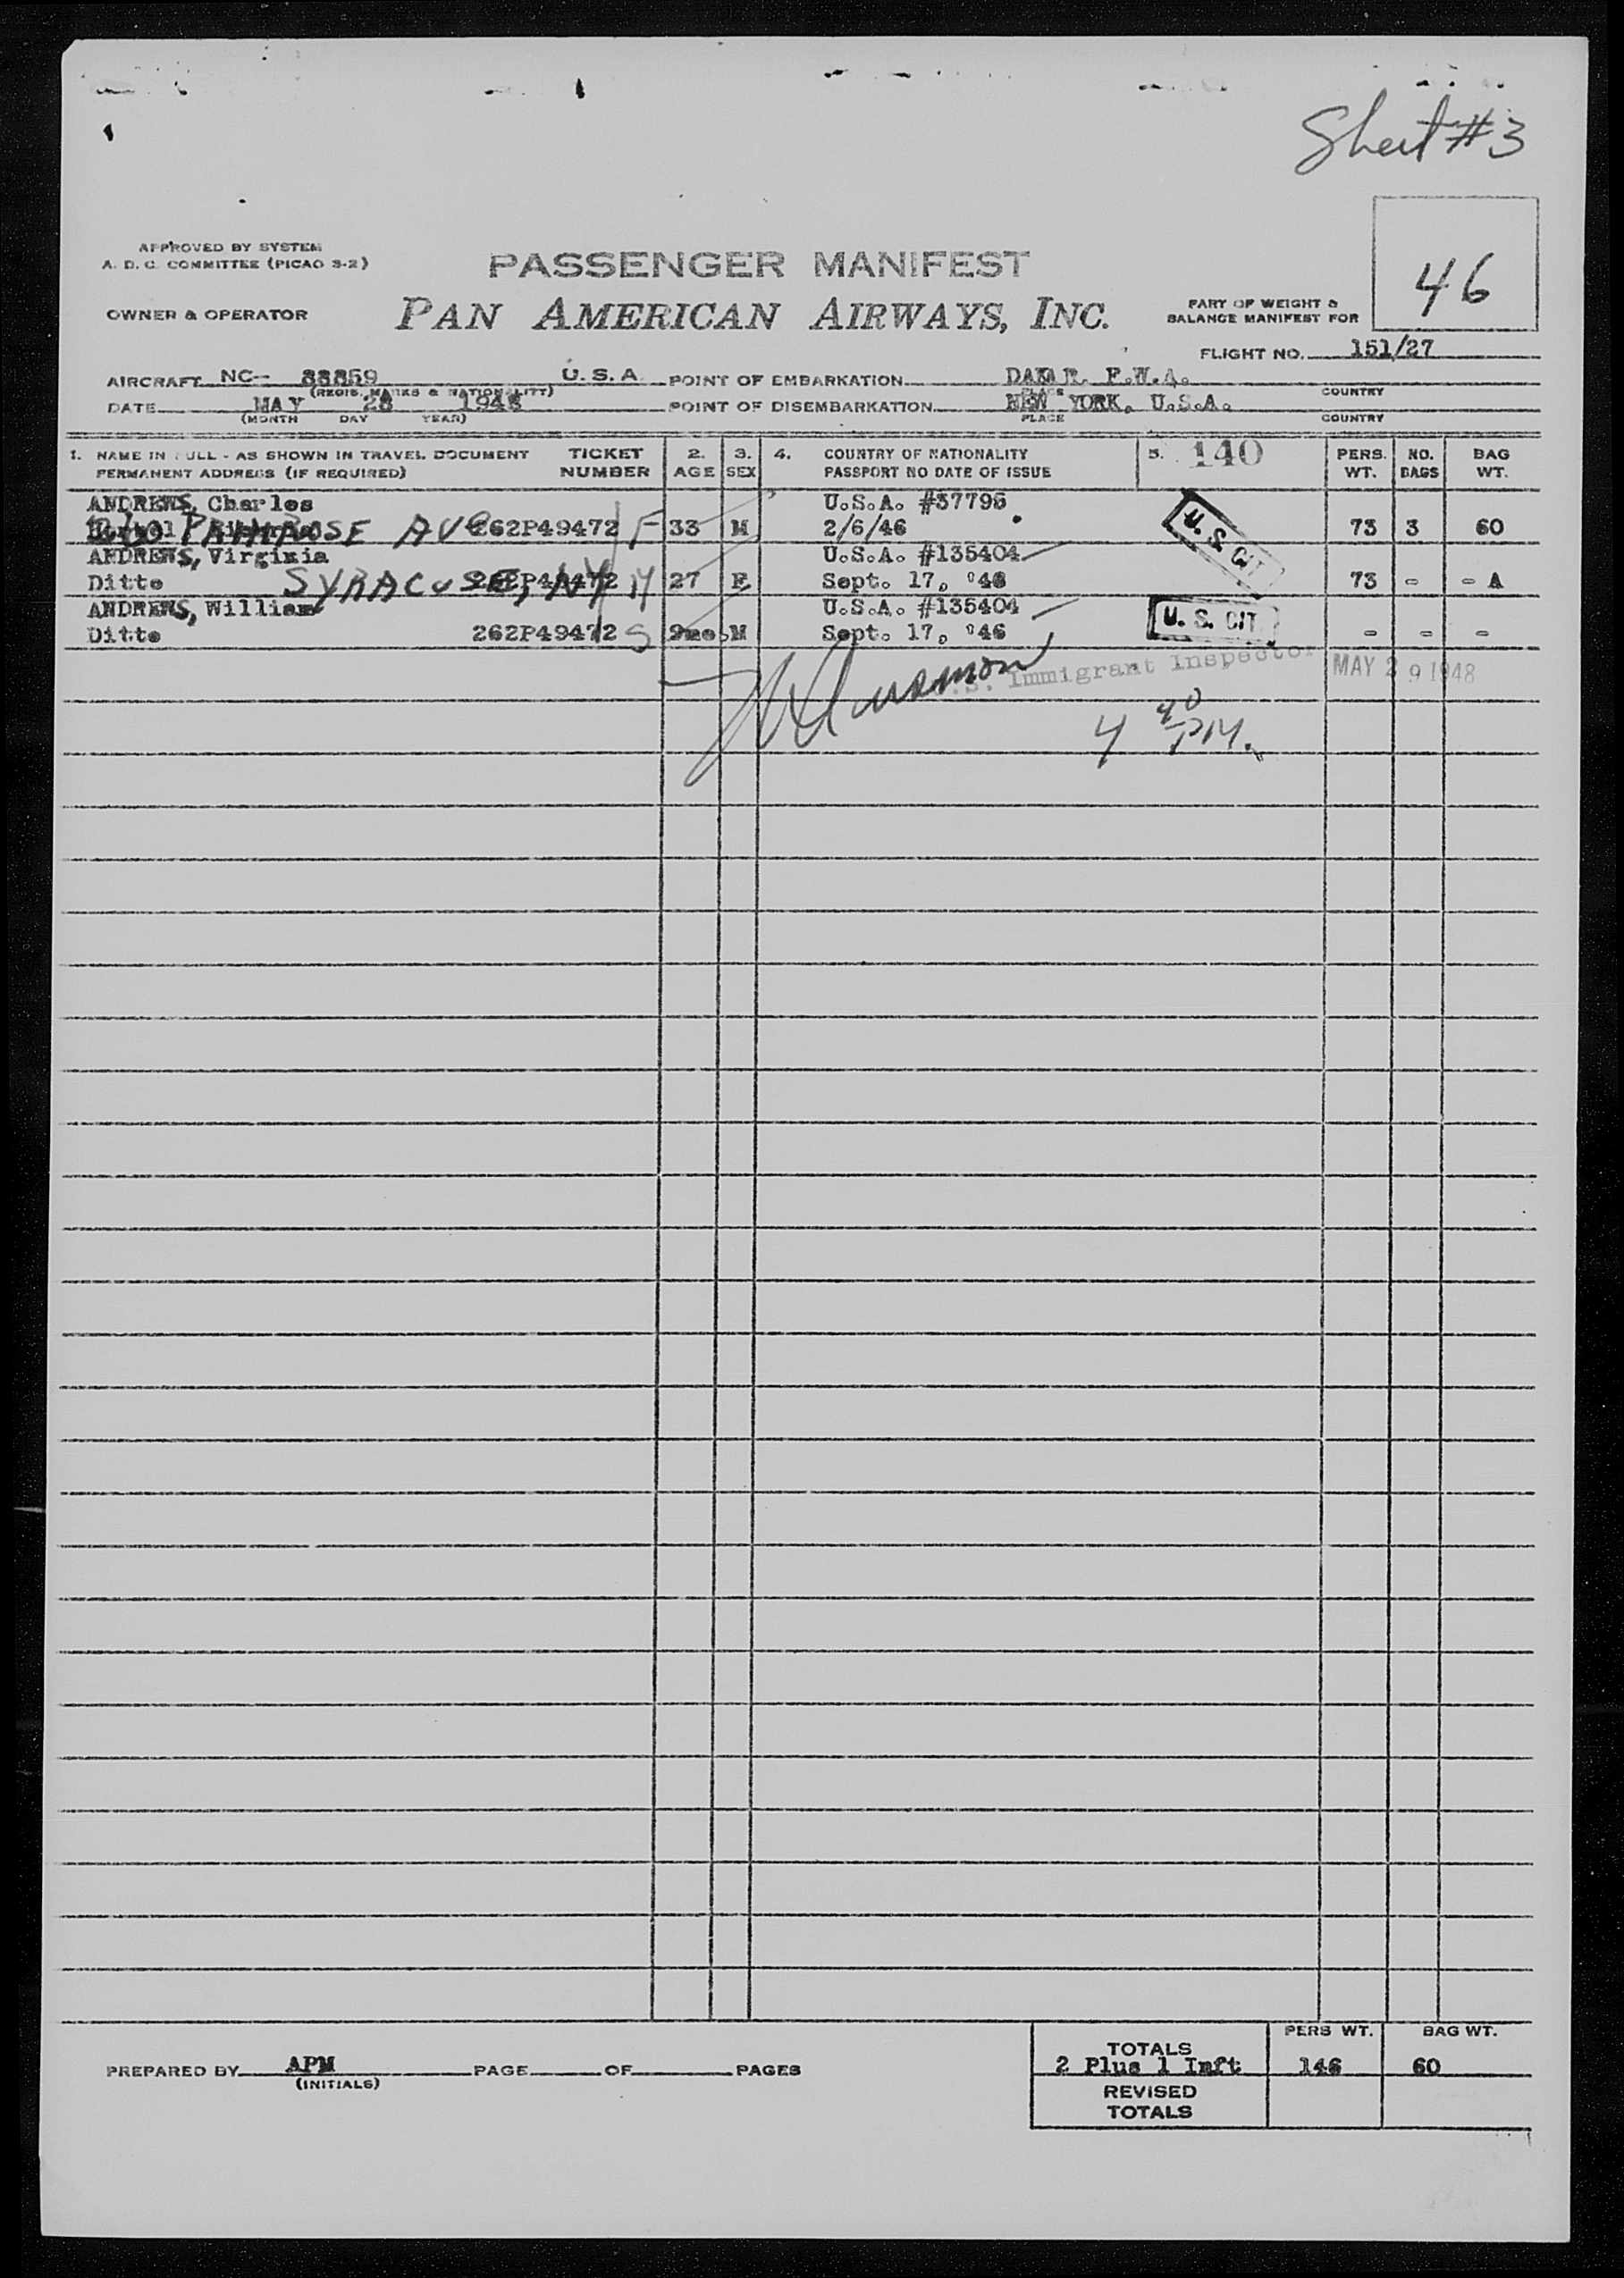 Sheet #3
46
APPROVED BY SYSTEM
A. D. C. COMMITTEE (PICAO 3-2)
PASSENGER MANIFEST
OWNER & OPERATOR
PAN AMERICAN AIRWAYS, INC.
PART OF WEIGHT &
BALANCE MANIFEST FOR
FLIGHT NO. 151/27
AIRCRAFT NC-- 88859 U.S.A. POINT OF EMBARKATION DAKAR F.W.A.
(REGIS. MARKS & NATIONALITY) PLACE COUNTRY
DATE MAY 28 1948 POINT OF DISEMBARKATION NEW YORK, U.S.A.
(MONTH DAY YEAR) PLACE COUNTRY
1. NAME IN FULL - AS SHOWN IN TRAVEL DOCUMENT TICKET 2. 3. 4. COUNTRY OF NATIONALITY 5. 140 PERS. NO. BAG
PERMANENT ADDRESS (IF REQUIRED) NUMBER AGE SEX PASSPORT NO DATE OF ISSUE WT. BAGS WT.
ANDREWS, Charles U.S.A. #37796
PRIMROSE AVE 262P49472 F 33 M 2/6/46 U. S. CIT 73 3 60
ANDREWS, Virginia U.S.A. #135404
Ditto SYRACUSE, NY 262P49472 M 27 F Sept. 17, '46 73 - - A
ANDREWS, William U.S.A. #135404
Ditto 262P49472 S 9mos M Sept. 17, '46 U. S. CIT. - - -
Immigrant Inspector MAY 29 1948
4 40 PM.
TOTALS PERS WT. BAG WT.
PREPARED BY APM PAGE OF PAGES 2 Plus 1 Inft 146 60
(INITIALS) REVISED
TOTALS